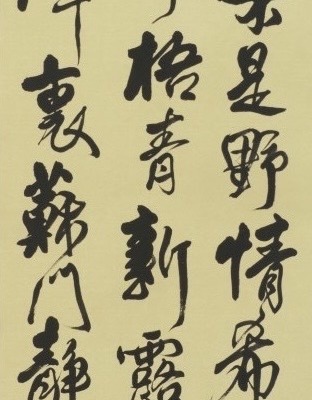 是野情希
梧青新露
裏蘇門静